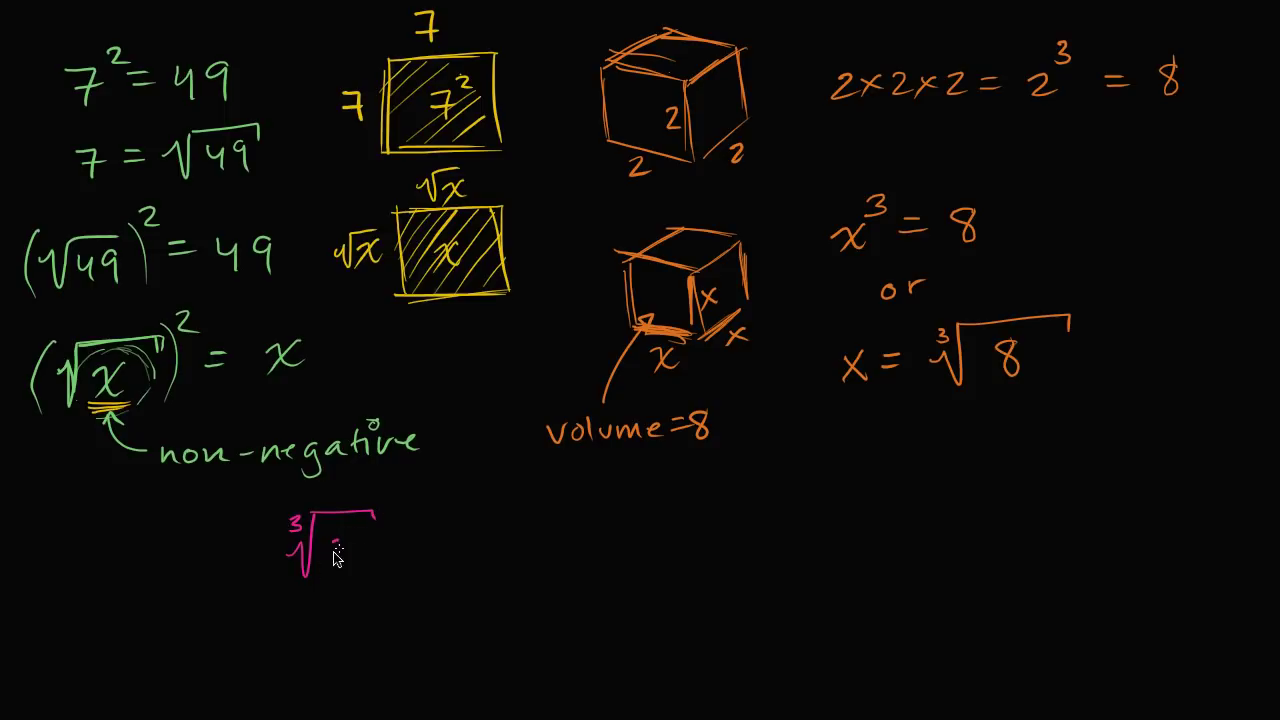 7² = 49
7 = √49
(√49)² = 49
(√x)² = x
non-negative
7
7
7²
√x
√x
x
2
2
2
x
x
x
volume=8
2×2×2 = 2³ = 8
x³ = 8
or
x = ∛8
∛